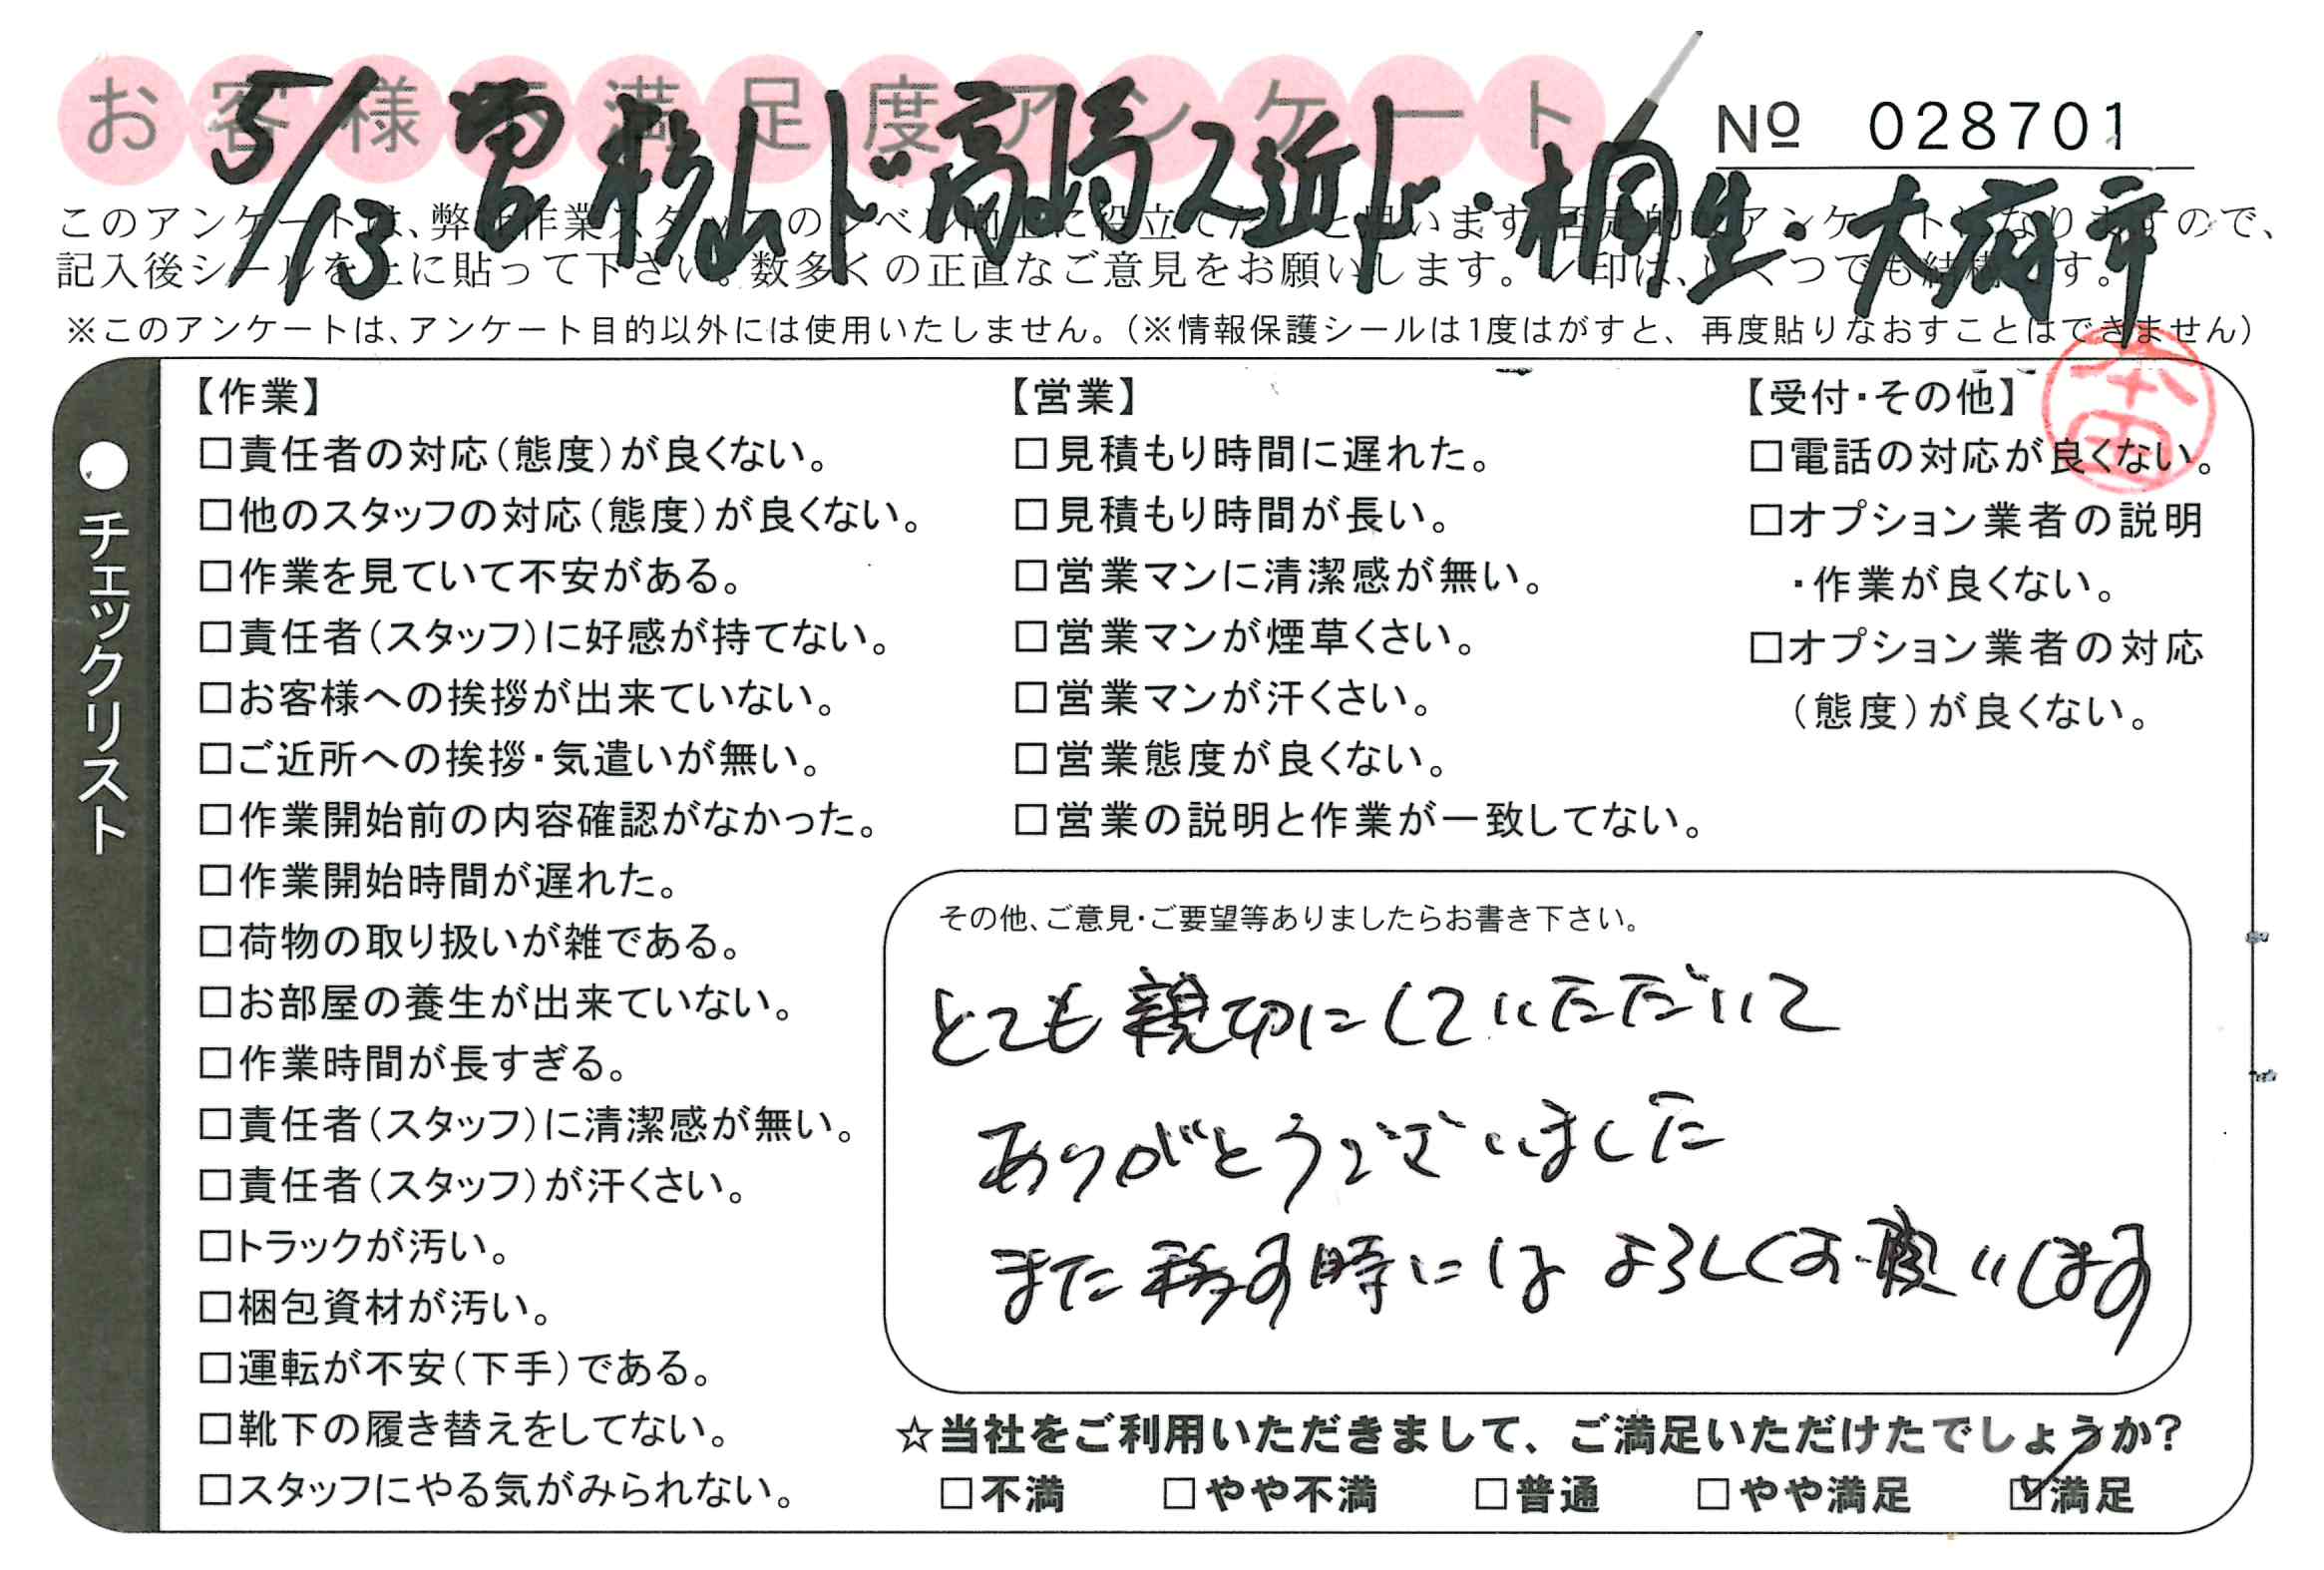 お客様不満足度アンケート
№ 028701
5/13
このアンケートは、弊社作業スタッフのレベル向上に役立てたいと思います。否定的なアンケートになりますので、
記入後シールを上に貼って下さい。数多くの正直なご意見をお願いします。レ印は、いくつでも結構です。
※このアンケートは、アンケート目的以外には使用いたしません。（※情報保護シールは1度はがすと、再度貼りなおすことはできません）
●チェックリスト
【作業】
□責任者の対応（態度）が良くない。
□他のスタッフの対応（態度）が良くない。
□作業を見ていて不安がある。
□責任者（スタッフ）に好感が持てない。
□お客様への挨拶が出来ていない。
□ご近所への挨拶・気遣いが無い。
□作業開始前の内容確認がなかった。
□作業開始時間が遅れた。
□荷物の取り扱いが雑である。
□お部屋の養生が出来ていない。
□作業時間が長すぎる。
□責任者（スタッフ）に清潔感が無い。
□責任者（スタッフ）が汗くさい。
□トラックが汚い。
□梱包資材が汚い。
□運転が不安（下手）である。
□靴下の履き替えをしてない。
□スタッフにやる気がみられない。
【営業】
□見積もり時間に遅れた。
□見積もり時間が長い。
□営業マンに清潔感が無い。
□営業マンが煙草くさい。
□営業マンが汗くさい。
□営業態度が良くない。
□営業の説明と作業が一致してない。
【受付・その他】
本田
□電話の対応が良くない。
□オプション業者の説明
・作業が良くない。
□オプション業者の対応
（態度）が良くない。
その他、ご意見・ご要望等ありましたらお書き下さい。
とても親切にしていただいて
ありがとうございました
また移す時にはよろしくお願いします
☆当社をご利用いただきまして、ご満足いただけたでしょうか?
□不満 □やや不満 □普通 □やや満足 ☑満足